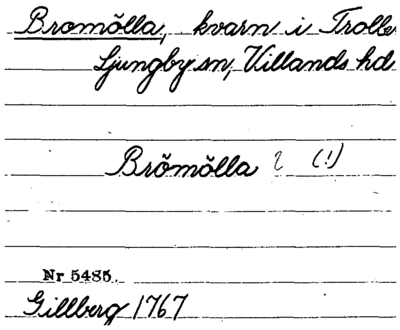 Bromölla, kvarn i Trolle
Ljungby sn, Villands hd
Brömölla ? (!)
Nr 5485.
Gillberg 1767